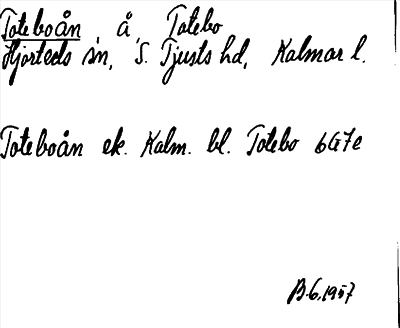 Toteboån, å, Totebo
Hjorteds sn, S. Tjusts hd, Kalmar l.
Toteboån ek. Kalm. bl. Totebo 6G7e
B.G. 1957